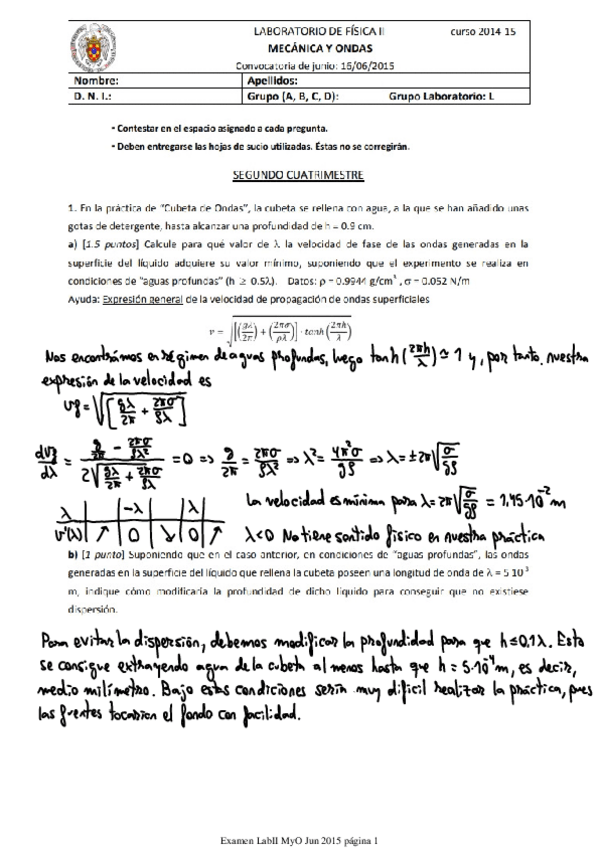 LABORATORIO DE FÍSICA II curso 2014-15
MECÁNICA Y ONDAS
Convocatoria de junio: 16/06/2015
Nombre: Apellidos:
D. N. I.: Grupo (A, B, C, D): Grupo Laboratorio: L
• Contestar en el espacio asignado a cada pregunta.
• Deben entregarse las hojas de sucio utilizadas. Éstas no se corregirán.
SEGUNDO CUATRIMESTRE
1. En la práctica de "Cubeta de Ondas", la cubeta se rellena con agua, a la que se han añadido unas
gotas de detergente, hasta alcanzar una profundidad de h = 0.9 cm.
a) [1.5 puntos] Calcule para qué valor de λ la velocidad de fase de las ondas generadas en la
superficie del líquido adquiere su valor mínimo, suponiendo que el experimento se realiza en
condiciones de "aguas profundas" (h ≥ 0.5λ). Datos: ρ = 0.9944 g/cm³ , σ = 0.052 N/m
Ayuda: Expresión general de la velocidad de propagación de ondas superficiales
v = √[(gλ/2π) + (2πσ/ρλ)] · tanh(2πh/λ)
Nos encontramos en régimen de aguas profundas, luego tanh(2πh/λ) ≃ 1 y, por tanto, nuestra
expresión de la velocidad es
vf = √[gλ/2π + 2πσ/ρλ]
dvf/dλ = (g/2π − 2πσ/ρλ²) / (2√(gλ/2π + 2πσ/ρλ)) = 0 => g/2π = 2πσ/ρλ² => λ² = 4π²σ/gρ => λ = ±2π√(σ/gρ)
λ | | −λ | | λ |
v'(λ) | ↗ | 0 | ↘ | 0 | ↗
La velocidad es mínima para λ = 2π√(σ/gρ) = 1,45·10⁻² m
λ<0 No tiene sentido físico en nuestra práctica
b) [1 punto] Suponiendo que en el caso anterior, en condiciones de "aguas profundas", las ondas
generadas en la superficie del líquido que rellena la cubeta poseen una longitud de onda de λ = 5 10⁻³
m, indique cómo modificaría la profundidad de dicho líquido para conseguir que no existiese
dispersión.
Para evitar la dispersión, debemos modificar la profundidad para que h≤0,1λ. Esto
se consigue extrayendo agua de la cubeta al menos hasta que h = 5·10⁻⁴m, es decir,
medio milímetro. Bajo estas condiciones sería muy difícil realizar la práctica, pues
las fuentes tocarían el fondo con facilidad.
Examen LabII MyO Jun 2015 página 1